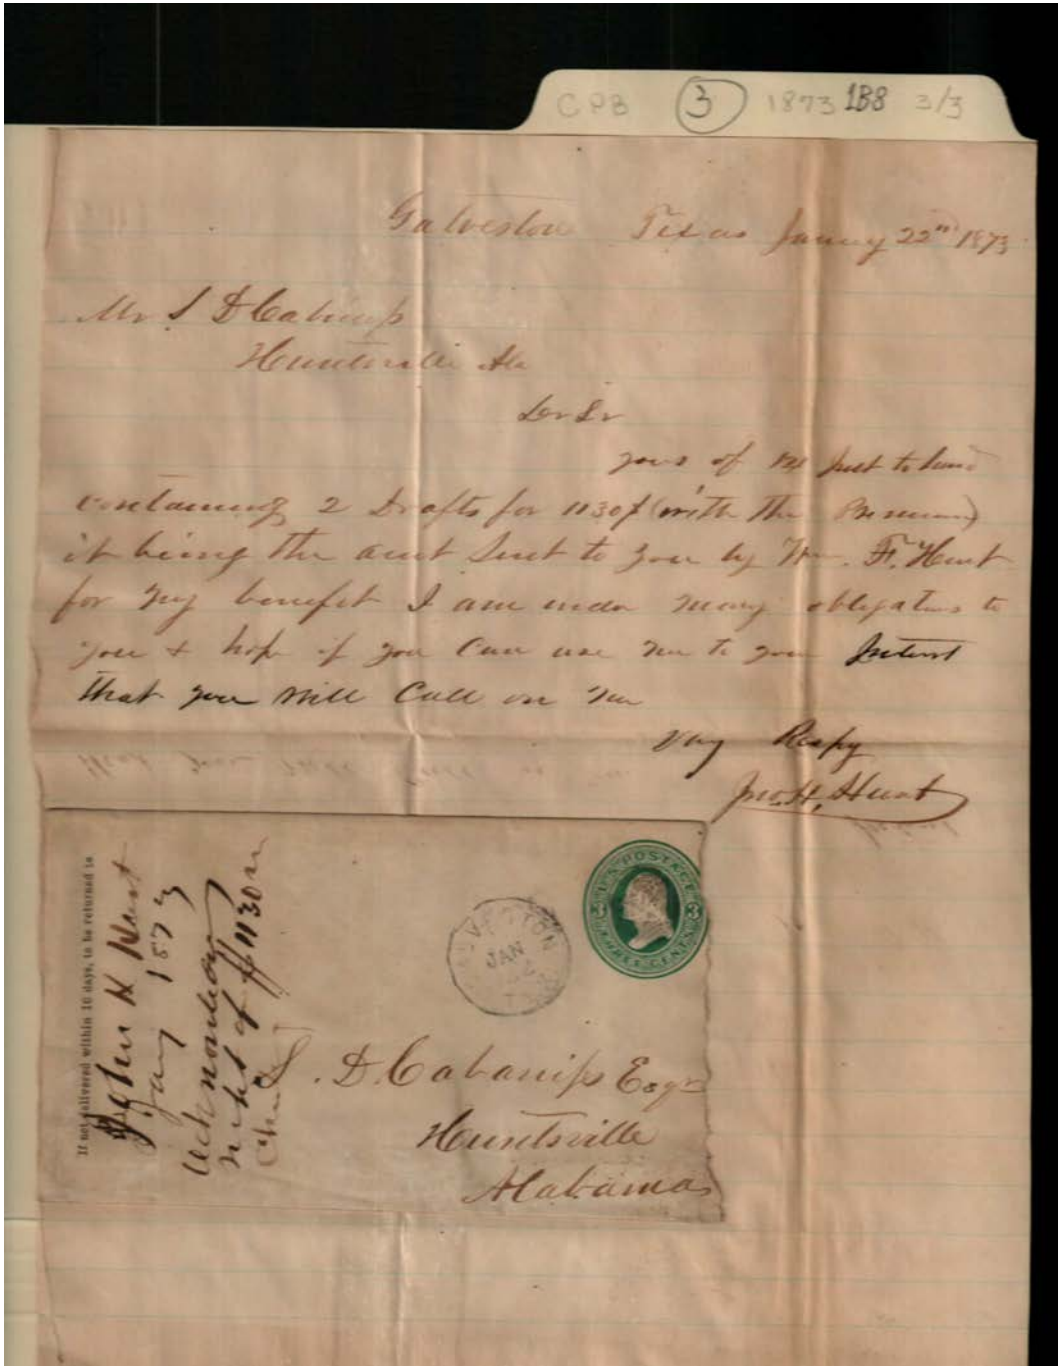 CPB 3 1873 1B8 3/3
Galveston Texas Janury 22nd 1873
Mr S D Cabaniss
Huntsville Ala
Dr Sr
yours of Just to hand
containing 2 Drafts for 1130$ (with the Premium)
it being the amt Sent to you by Wm. F. Hunt
for my benefit I am under many obligations to
you & hope if you Can use me to your Interest
that you will Call on me
Very Respy
Jno. H. Hunt
If not delivered within 10 days, to be returned to
John H Hunt
Jany 1873
Acknowledg
ment of $1130
U.S. POSTAGE
3 3
THREE CENTS
GALVESTON
JAN
S. D. Cabaniss Esqr
Huntsville
Alabama